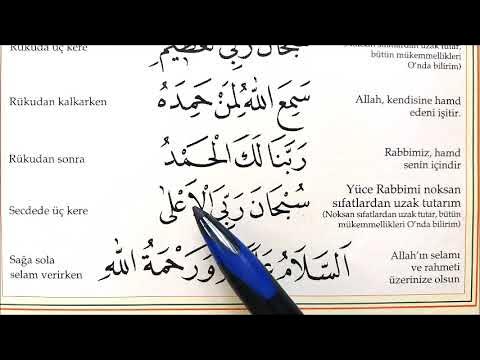 Rükuda üç kere
سُبْحَانَ رَبِّيَ الْعَظِيمِ
(Noksan sıfatlardan uzak tutar,
bütün mükemmellikleri
O'nda bilirim)
Rükudan kalkarken
سَمِعَ اللّٰهُ لِمَنْ حَمِدَهُ
Allah, kendisine hamd
edeni işitir.
Rükudan sonra
رَبَّنَا لَكَ الْحَمْدُ
Rabbimiz, hamd
senin içindir
Secdede üç kere
سُبْحَانَ رَبِّيَ الْاَعْلٰى
Yüce Rabbimi noksan
sıfatlardan uzak tutarım
(Noksan sıfatlardan uzak tutar, bütün
mükemmellikleri O'nda bilirim)
Sağa sola
selam verirken
اَلسَّلَامُ وَرَحْمَةُ اللّٰهِ
Allah'ın selamı
ve rahmeti
üzerinize olsun